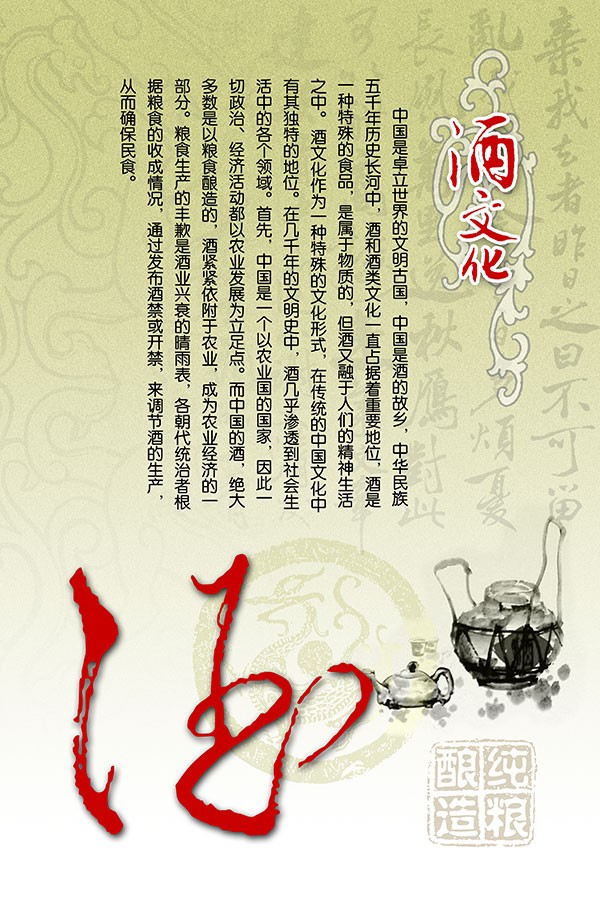 棄我去者昨日之日不可留
亂
煩憂
長風萬里送秋鴈對此
酒文化
中国是卓立世界的文明古国，中国是酒的故乡，中华民族
五千年历史长河中，酒和酒类文化一直占据着重要地位，酒是
一种特殊的食品，是属于物质的，但酒又融于人们的精神生活
之中。 酒文化作为一种特殊的文化形式，在传统的中国文化中
有其独特的地位。在几千年的文明史中，酒几乎渗透到社会生
活中的各个领域。首先，中国是一个以农业国的国家，因此一
切政治、经济活动都以农业发展为立足点。而中国的酒，绝大
多数是以粮食酿造的，酒紧紧依附于农业，成为农业经济的一
部分。粮食生产的丰歉是酒业兴衰的晴雨表，各朝代统治者根
据粮食的收成情况，通过发布酒禁或开禁，来调节酒的生产，
从而确保民食。
酒
纯粮
酿造